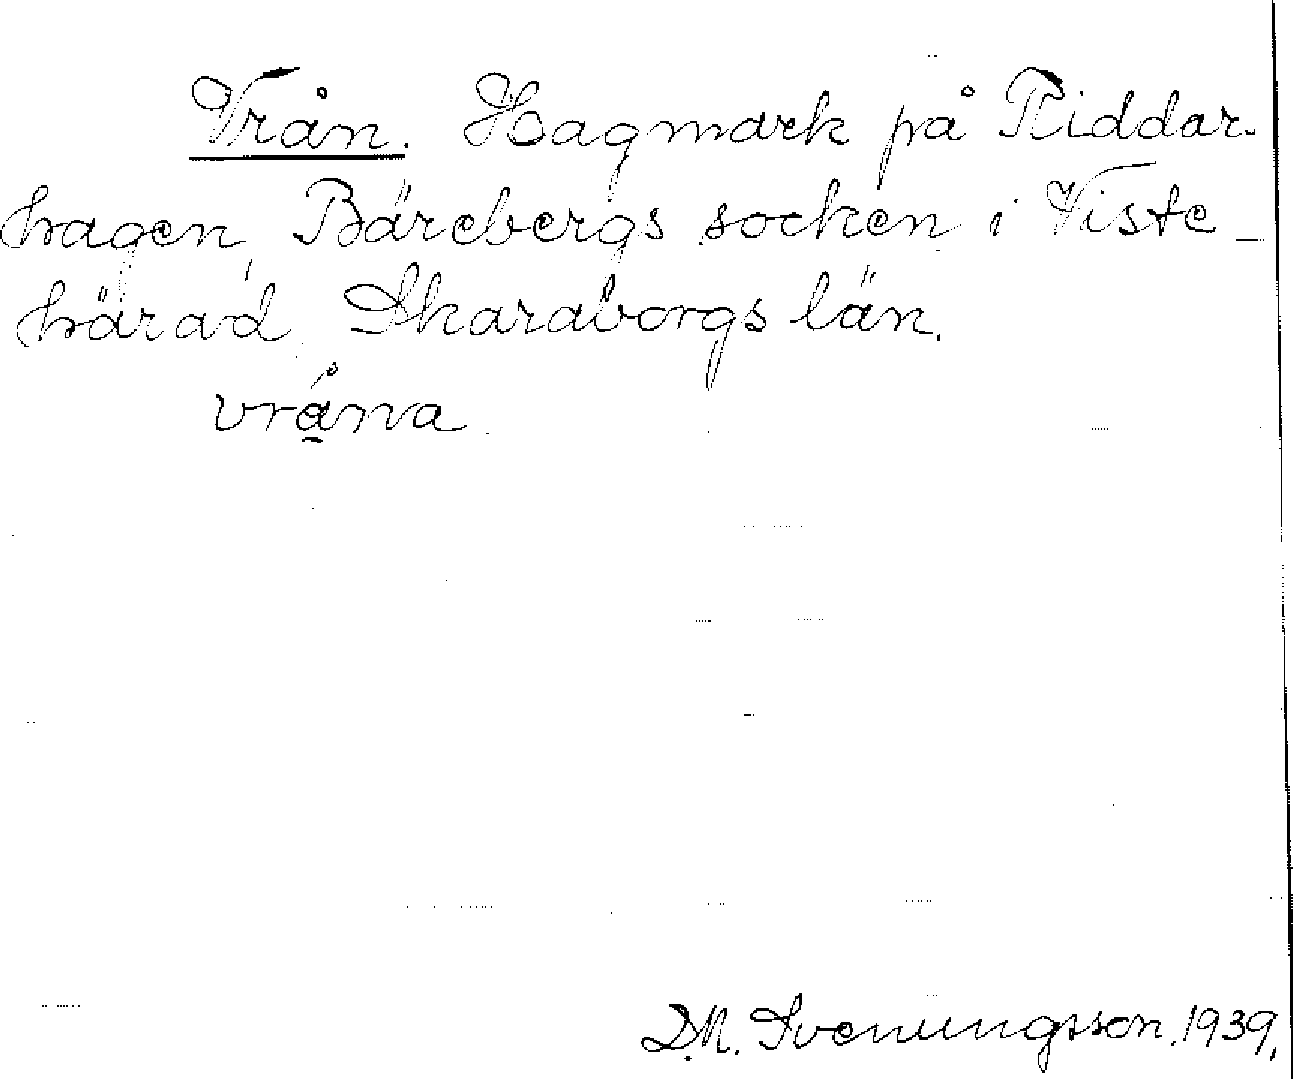 Vrån. Hagmark på Riddar-
hagen, Bärebergs socken i Viste
härad, Skaraborgs län.
vråna
D.M. Svenungsson. 1939.